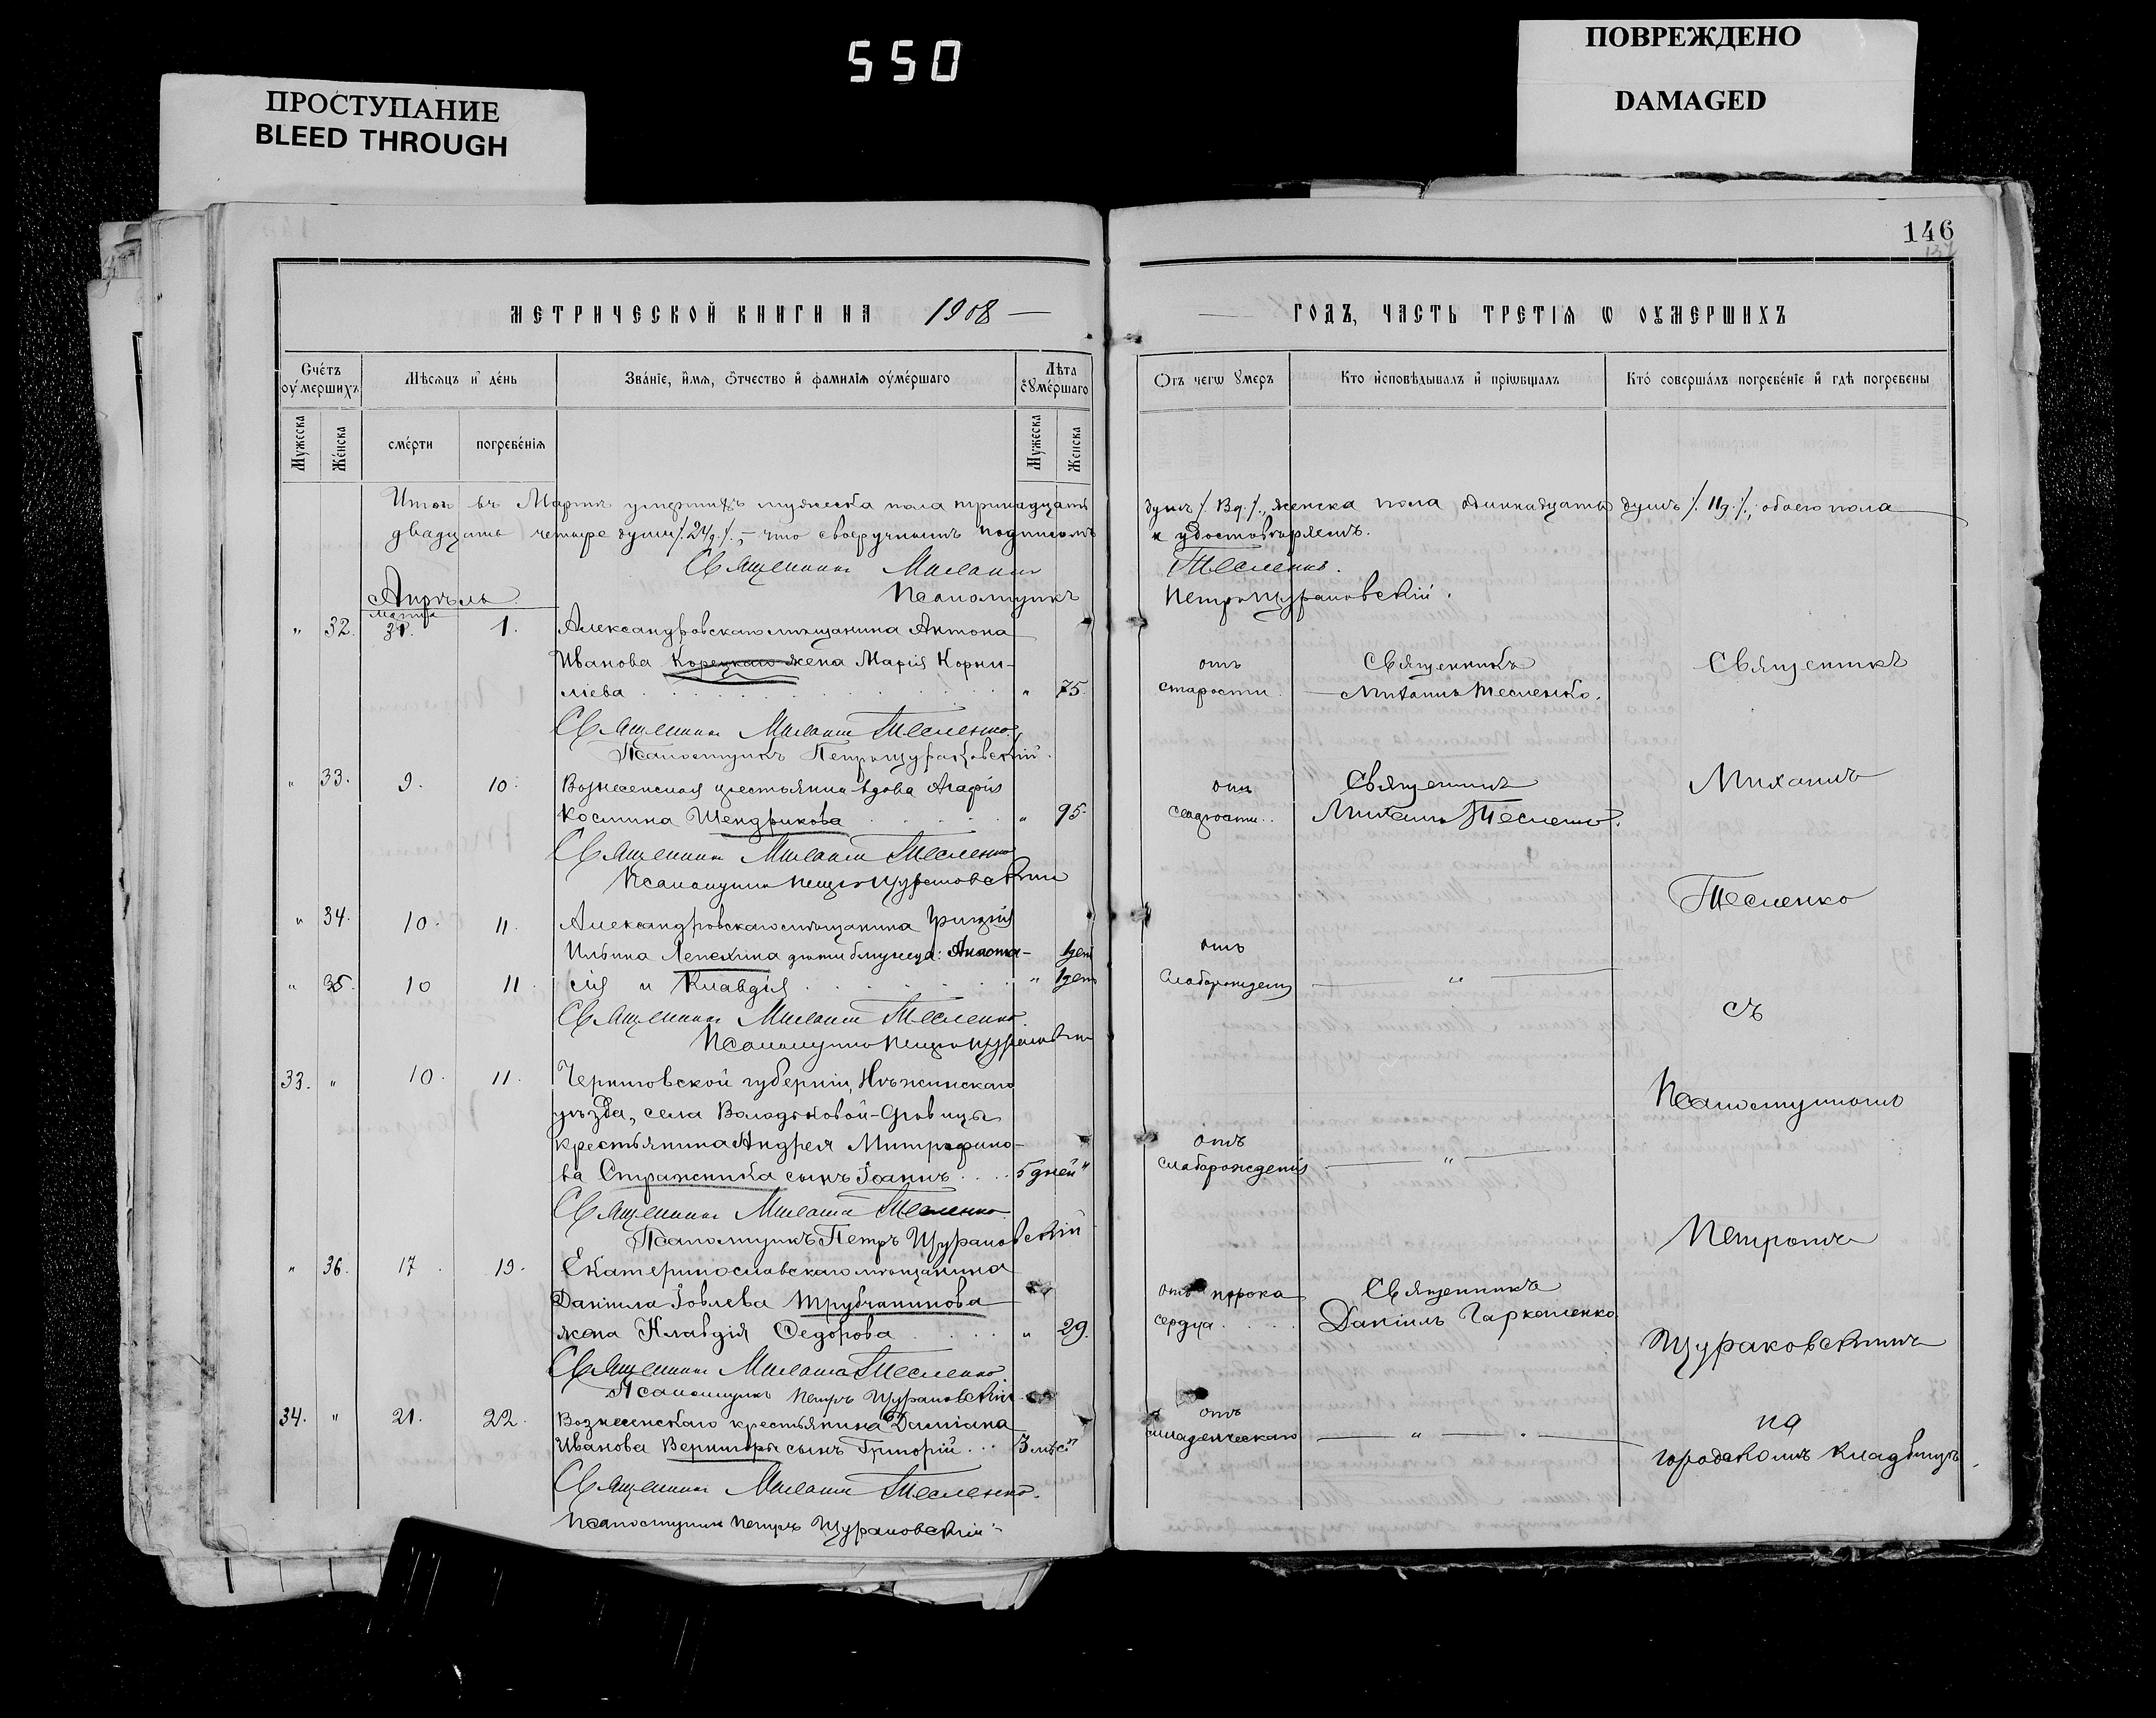 550
ПРОСТУПАНИЕ
BLEED THROUGH
ПОВРЕЖДЕНО
DAMAGED
146
МЕТРИЧЕСКОЙ КНИГИ НА 1908
Счетъ оумершихъ
Мѣсяцъ и день
Званіе, имя, отчество и фамилія оумершаго
Лѣта оумершаго
Мужеска
Женска
смерти
погребенія
Мужеска
Женска
Итого въ Мартѣ умершихъ мужеска пола тринадцать
двадцать четыре душъ /.24д./., – что своеручнымъ подписомъ
Священникъ Михаилъ
Псаломщикъ
Апрѣль
Марта
" 32. 31. 1. Александровскаго мѣщанина Антона
Иванова Корецкаго жена Марія Корни-
ліева " 75.
Священникъ Михаилъ Тесленко
Псаломщикъ Петръ Щураковскій.
" 33. 9. 10. Вознесенская крестьянка вдова Агафія
Космина Шендрикова " 95.
Священникъ Михаилъ Тесленко
Псаломщикъ Петръ Щураковскій
" 34. 10. 11. Александровскаго мѣщанина
Ильина Лепехина дѣти близнецы: Анаста- 1 день
" 35. 10 11. сія и Клавдія " 1 день
Священникъ Михаилъ Тесленко
Псаломщикъ Петръ Щураковскій
33. " 10. 11. Черниговской губерніи, Нѣжинскаго
уѣзда, села Володьковой-Дѣвицы
крестьянина Андрея Митрофано-
ва Стражника сынъ Іоаннъ 5 дней "
Священникъ Михаилъ Тесленко
Псаломщикъ Петръ Щураковскій
" 36. 17. 19. Екатеринославскаго мѣщанина
Даніила Іовлева Трубчанинова
жена Клавдія Федорова " 29.
Священникъ Михаилъ Тесленко
Псаломщикъ Петръ Щураковскій
34. " 21. 22. Вознесенскаго крестьянина Даміана
Иванова Вернигоры сынъ Григорій 3 мѣс. "
Священникъ Михаилъ Тесленко.
Псаломщикъ Петръ Щураковскій
ГОДЪ, ЧАСТЬ ТРЕТІЯ Ѡ ОУМЕРШИХЪ
Отъ чегѡ умеръ
Кто исповѣдывалъ и пріѡбщалъ
Кто совершалъ погребеніе и гдѣ погребены
душъ /.13д./., женска пола одиннадцать душъ /.11д./., обоего пола
и удостовѣряемъ.
Тесленко.
Петръ Щураковскій.
отъ Священникъ Священникъ
старости. Михаилъ Тесленко.
отъ Священникъ Михаилъ
старости. Михаилъ Тесленко.
Тесленко
отъ
слаборожденія "
съ
Псаломщикомъ
отъ
слаборожденія "
Петромъ
отъ порока Священникъ
сердца Даніилъ Гаркошенко
Щураковскимъ
отъ на
младенческаго " городскомъ кладбищѣ.